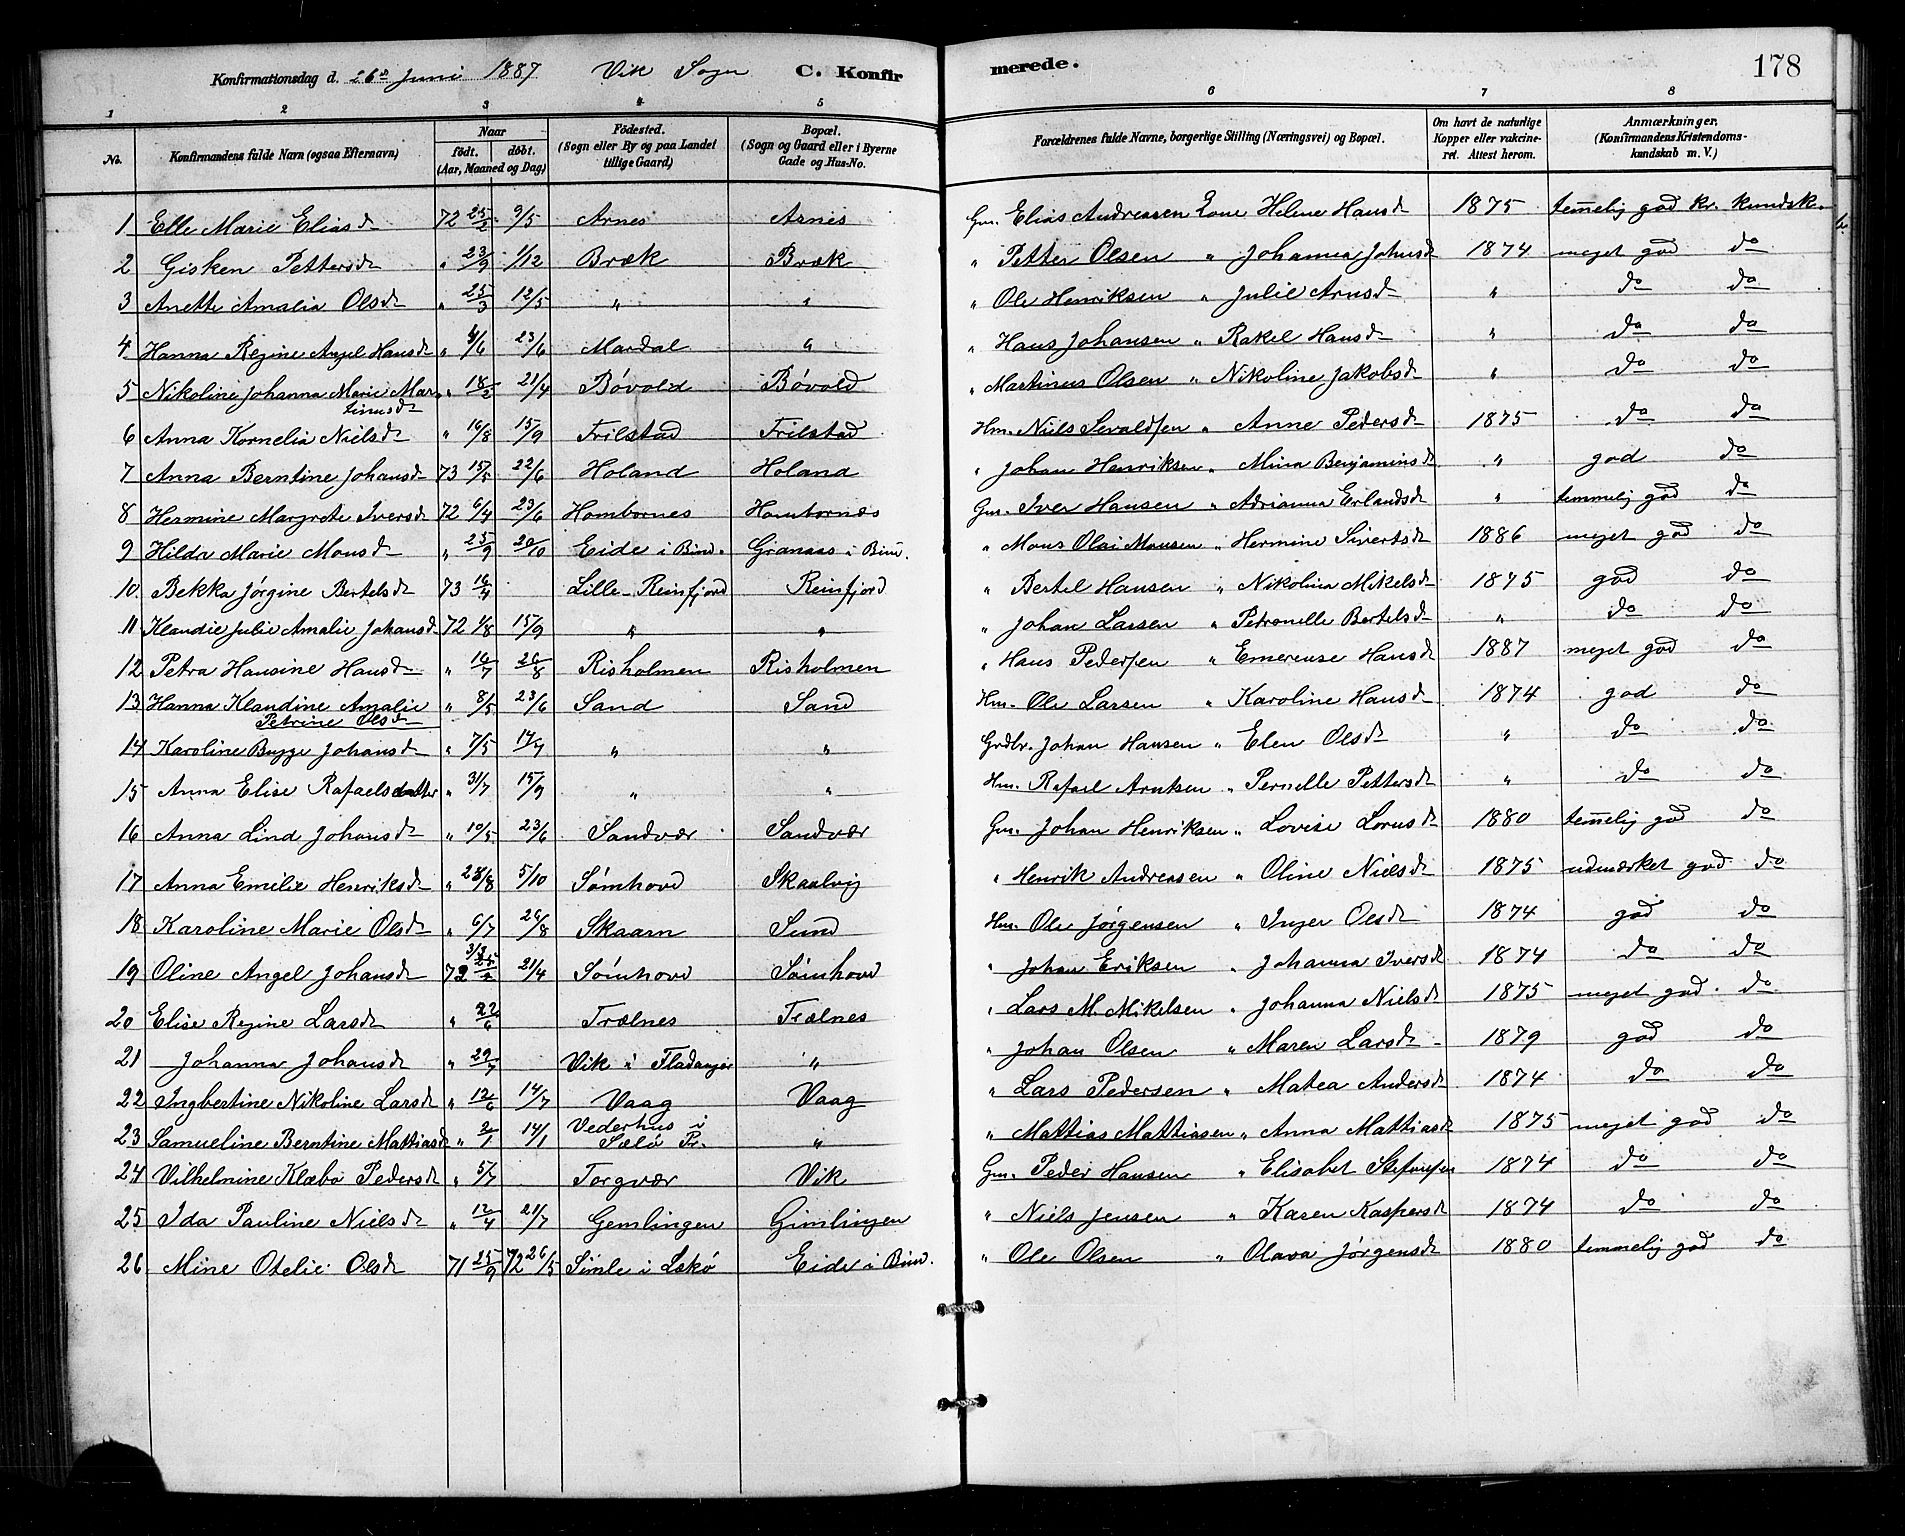 Konfirmationsdag d. 26de Juni 1887. Vik Sogn C. Konfirmerede. 178
1 2 3 4 5 6 7 8
No. Konfirmandens fulde Navn (ogsaa Efternavn) Naar født. døbt. (Aar, Maaned og Dag) Fødested. (Sogn eller By og paa Landet tillige Gaard) Bopæl. (Sogn og Gaard eller i Byerne Gade og Hus-No. Forældrenes fulde Navne, borgerlige Stilling (Næringsvei) og Bopæl. Om havt de naturlige Kopper eller vakcineret. Attest herom. Anmærkninger. (Konfirmandens Kristendomskundskab m. V.)
1 Elle Marie Eliasd 72 25/2 9/5 Arnes Arnes Gm. Elias Andreassen Kone Helene Hansd 1875 temmelig god kr. kundsk.
2 Gisken Pettersd " 23/9 1/12 Bræk Bræk " Petter Olsen " Johanna Johnsd 1874 meget god do
3 Anette Amalia Olsd " 25/3 12/5 " " " Ole Henriksen " Julie Arnsd " do do
4 Hanna Regine Angel Hansd " 4/6 23/6 Mardal " " Hans Johansen " Rakel Hansd " do do
5 Nikoline Johanna Marie Martinusd " 18/2 21/4 Bøvold Bøvold " Martinus Olsen " Nikoline Jakobsd " do do
6 Anna Kornelia Nielsd " 16/8 15/9 Trilstad Trilstad Hm. Niels Sevaldsen " Anne Pedersd 1875 do do
7 Anna Berntine Johansd 73 15/5 22/6 Holand Holand " Johan Henriksen " Mina Benjaminsd " god do
8 Hermine Margrete Iversd 72 6/4 23/6 Hombornes Hombornes Gm. Iver Hansen " Adrianna Erlandsd " temmelig god do
9 Hilda Marie Monsd " 25/9 20/10 Eide i Bind. Granaas i Bind. " Mons Olai Monsen " Hermine Sivertsd 1886 meget god do
10 Bekka Jørgine Bertelsd 73 16/4 Lille-Reinfjord Reinfjord " Bertel Hansen " Nikolina Mikelsd 1875 god do
11 Klaudie Julie Amalie Johansd 72 1/8 15/9 " " " Johan Larsen " Petronelle Bertelsd " do do
12 Petra Hansine Hansd " 16/7 26/8 Risholmen Risholmen " Hans Pedersen " Emerense Hansd 1887 meget god do
13 Hanna Klaudine Amalie Petrine Olsd " 8/5 23/6 Sand Sand Hm. Ole Larsen " Karoline Hansd 1874 god do
14 Karoline Bugge Johansd " 7/5 14/7 " " Grdbr. Johan Hansen " Elen Olsd " do do
15 Anna Elise Rafaelsdatter " 31/7 15/9 " " Hm. Rafael Arntsen " Pernelle Pettersd " do do
16 Anna Lind Johansd " 10/5 23/6 Sandvær Sandvær Gm. Johan Henriksen " Lovise Lornsd 1880 temmelig god do
17 Anna Emelie Henriksd " 28/8 5/10 Sømhovd Skaalvig " Henrik Andreasen " Oline Nielsd 1875 udmærket god do
18 Karoline Marie Olsd " 6/7 26/8 Skaarn Sund Hm. Ole Jørgensen " Inger Olsd 1874 god do
19 Oline Angel Johansd 72 21/4 Sømhovd Sømhovd " Johan Eriksen " Johanna Iversd 1874 do do
20 Elise Regine Larsd " 22/6 Trælnes Trælnes " Lars M. Mikelsen " Johanna Nielsd 1875 meget god. do
21 Johanna Johansd " 29/7 Vik i Fladanger " " Johan Olsen " Maren Larsd 1879 god do
22 Ingbertine Nikoline Larsd " 12/6 14/7 Vaag Vaag " Lars Pedersen " Matea Andersd 1874 do do
23 Samueline Berntine Mattiasd " 2/1 14/1 Vederhus i Sælø Pr. " " Mattias Mattiasen " Anna Mattiasd 1875 meget god do
24 Vilhelmine Klæbo Pedersd " 5/7 Torgvær Vik Gm. Peder Hansen " Elisabet 1874 do do
25 Ida Pauline Nielsd " 12/4 21/7 Gemlingen Gimlingen " Niels Jensen " Karen Kaspersd 1874 do do
26 Mine Otelie Olsd 71 25/9 72 26/5 Simle i Lekø Eide i Bind. " Ole Olsen " Olava Jørgensd 1880 temmelig god do